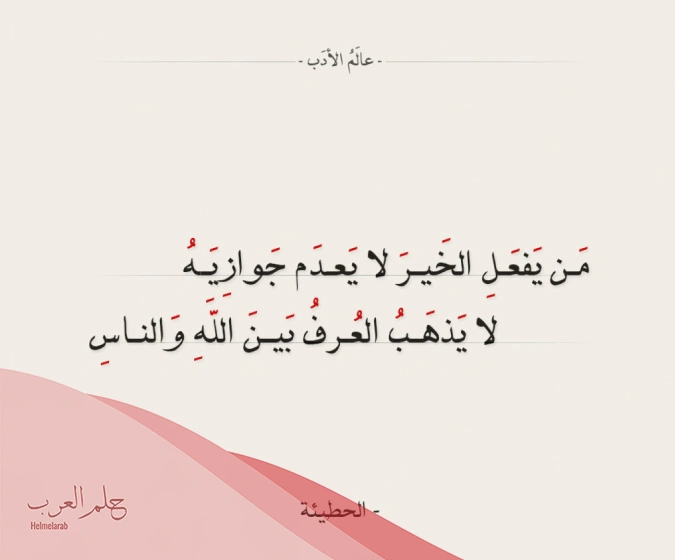 - عالَمُ الأدَب -
مَـن يَفعَـلِ الخَيـرَ لا يَعـدَم جَوازِيَـهُ
لا يَذهَـبُ العُـرفُ بَيـنَ اللَّهِ وَالنـاسِ
- الحطيئة
حلم العرب
Helmelarab